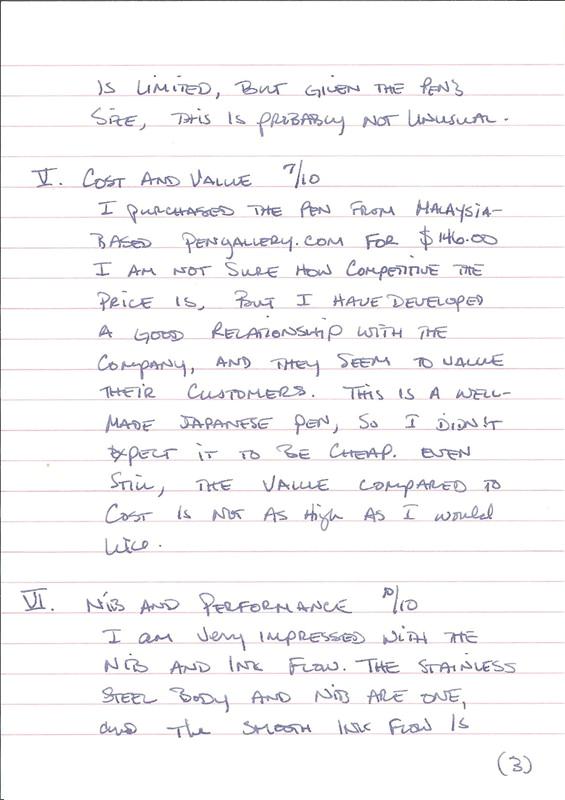 IS LIMITED, BUT GIVEN THE PEN'S
SIZE, THIS IS PROBABLY NOT UNUSUAL.
V. COST AND VALUE 7/10
I PURCHASED THE PEN FROM MALAYSIA-
BASED PENGALLERY.COM FOR $146.00
I AM NOT SURE HOW COMPETITIVE THE
PRICE IS, BUT I HAVE DEVELOPED
A GOOD RELATIONSHIP WITH THE
COMPANY, AND THEY SEEM TO VALUE
THEIR CUSTOMERS. THIS IS A WELL-
MADE JAPANESE PEN, SO I DIDN'T
EXPECT IT TO BE CHEAP. EVEN
STILL, THE VALUE COMPARED TO
COST IS NOT AS HIGH AS I WOULD
LIKE.
VI. NIB AND PERFORMANCE 10/10
I AM VERY IMPRESSED WITH THE
NIB AND INK FLOW. THE STAINLESS
STEEL BODY AND NIB ARE ONE,
AND THE SMOOTH INK FLOW IS
(3)